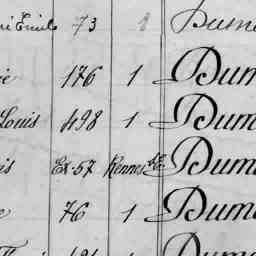 ri Emile 73 1 Dume
ie 176 1 Dume
Louis 498 1 Dume
is Ex-57 Rennes Dume
e 76 1 Dume